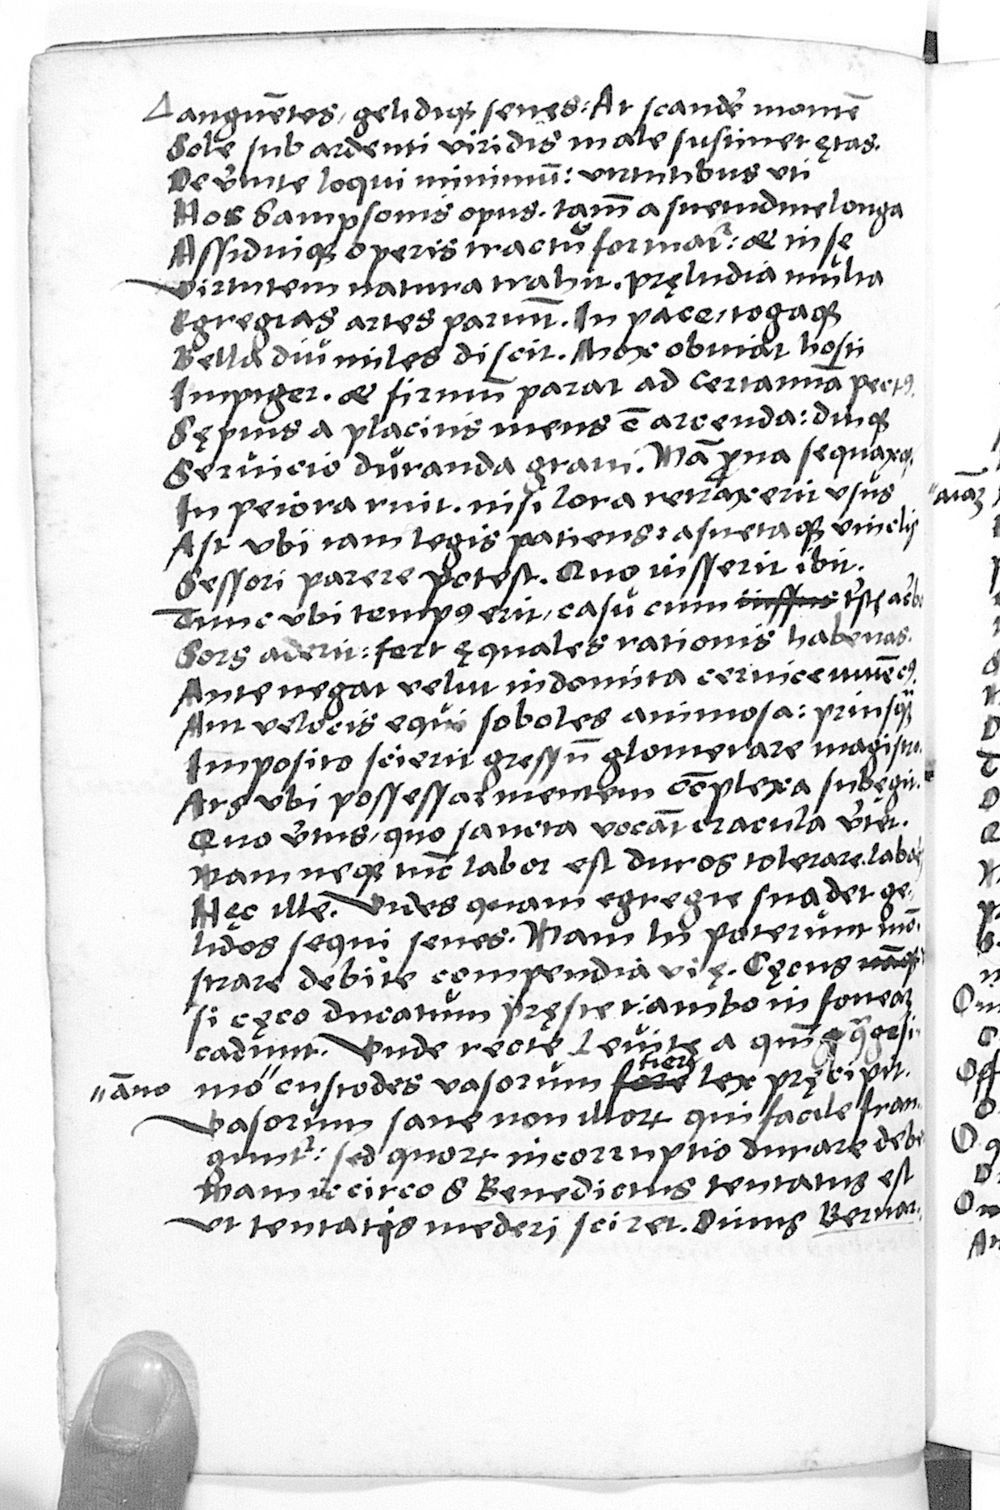 Languētes, gelidiqꝫ senes: At scandē montē
Sole sub ardenti viridis male sustinet ętas.
De v̄tute loqui minimū: virtutibus vti
Hoc Sampsonis opus. tam̄ a suetudine longa
Assiduiqꝫ operis tractū format᷑: & in se
Virtutem natura trahit. pręludia multa
Egregias artes pariūt. In pace, togaqꝫ
Bella diu miles discit. Mox obuiat hosti
Impiger. & firmū parat ad certamīa pectꝰ.
Sępius a placitis mens ē arcenda: diuqꝫ
Seruicio duranda graui. Nā ꝓna sequaxqꝫ
In peiora ruit. nisi lora retraxerit vsus
Ast vbi iam legis patiens: asuetaqꝫ vinclis
Sessori parere potest. Quo iusserit ibit.
Tunc vbi tempꝰ erit, casu cum
Sors aderit: fert ęquales rationis habenas.
Ante negat velut indomita ceruice iuuēcꝰ.
Aut velocis equi soboles animosa: priusqꝫ̄
Imposito scierit gressū glomerare magistro.
Ars vbi possessae mentem cōplexa subegit.
Quo v̄tus, quo sancta vocāt oracula v̄tit᷑.
Nam neqꝫ tūc labor est duros tolerare labores
Hęc ille. Vides quam egregie suadet ge-
lidos sequi senes. Nam hi poterunt mō-
strare debite compendia vię. Cęcus
si cęco ducatum pręstet: ambo in foueaꝫ
cadunt. Vnde recte Leuite a quīq̄gesi-
"āno mo" custodes vasorum fieri lex pręcipit.
Vasorum sane non illoꝝ qui facile fran-
gunt᷑: sed quoꝝ incorruptio durare debet
Nam iccirco S Benedictus tentatus est
Vt tentatis mederi sciret. Diuus Bernar-